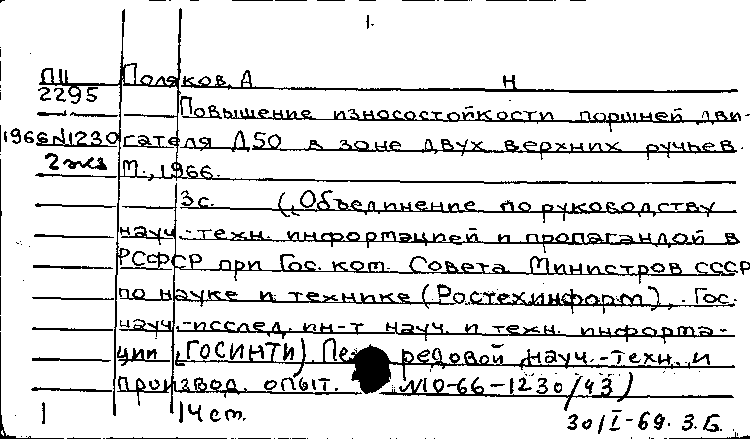 1.
ПЦ Поляков, А Н
2295
Повышение износостойкости поршней дви-
1966 №1230 гателя Д50 в зоне двух верхних ручьев.
2 экз М., 1966.
3с. („Объединение по руководству
науч.-техн. информацией и пропагандой в
РСФСР при Гос. ком. Совета Министров СССР
по науке и технике (Ростехинформ), Гос.
науч.-исслед. ин-т науч. и техн. информа-
ции (ГОСИНТИ). Передовой науч.-техн. и
производ. опыт. №10-66-1230/43)
1 14 ст.
30/I-69. З.Б.